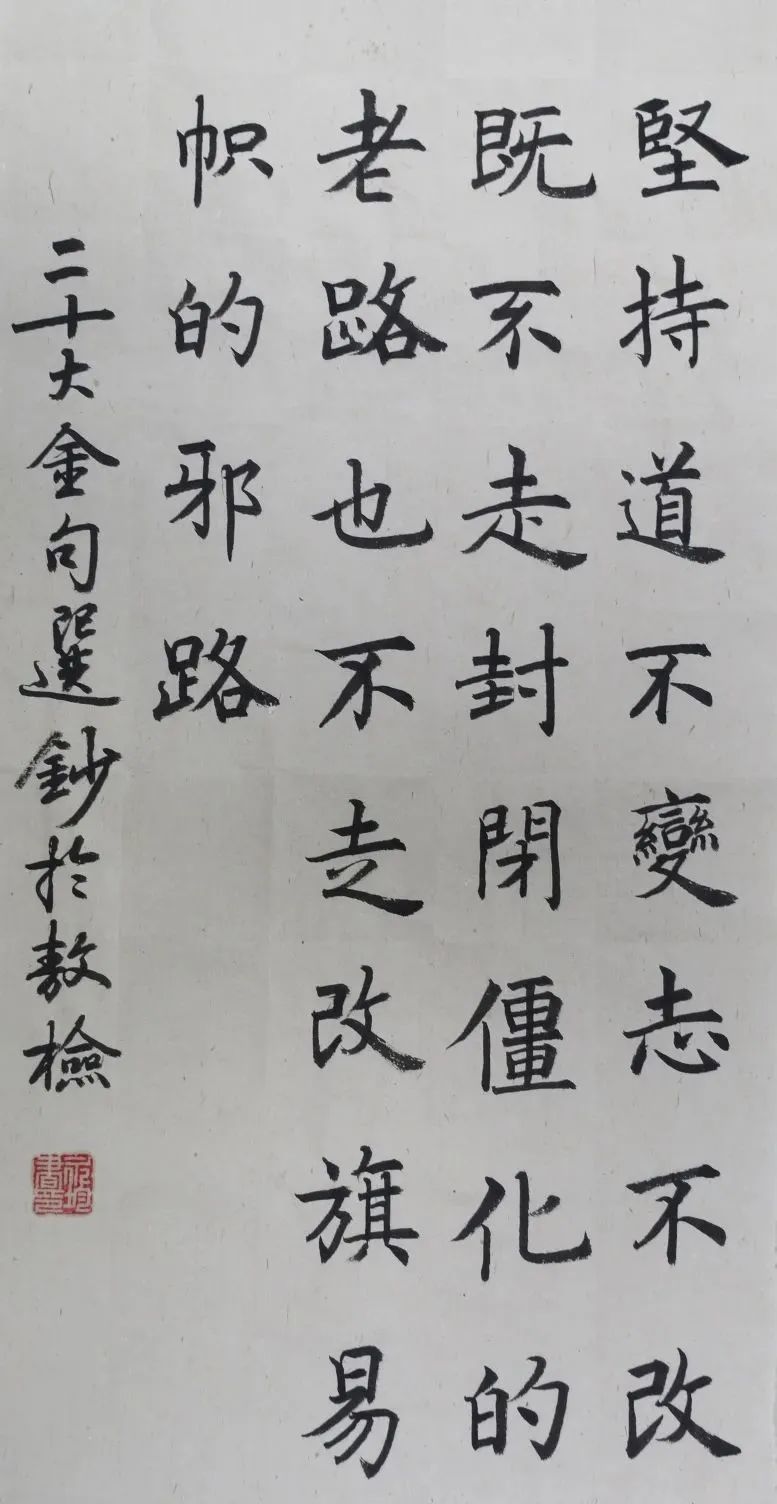 堅持道不變志不改
既不走封閉僵化的
老路也不走改旗易
帜的邪路
二十大金句選鈔於敖檢